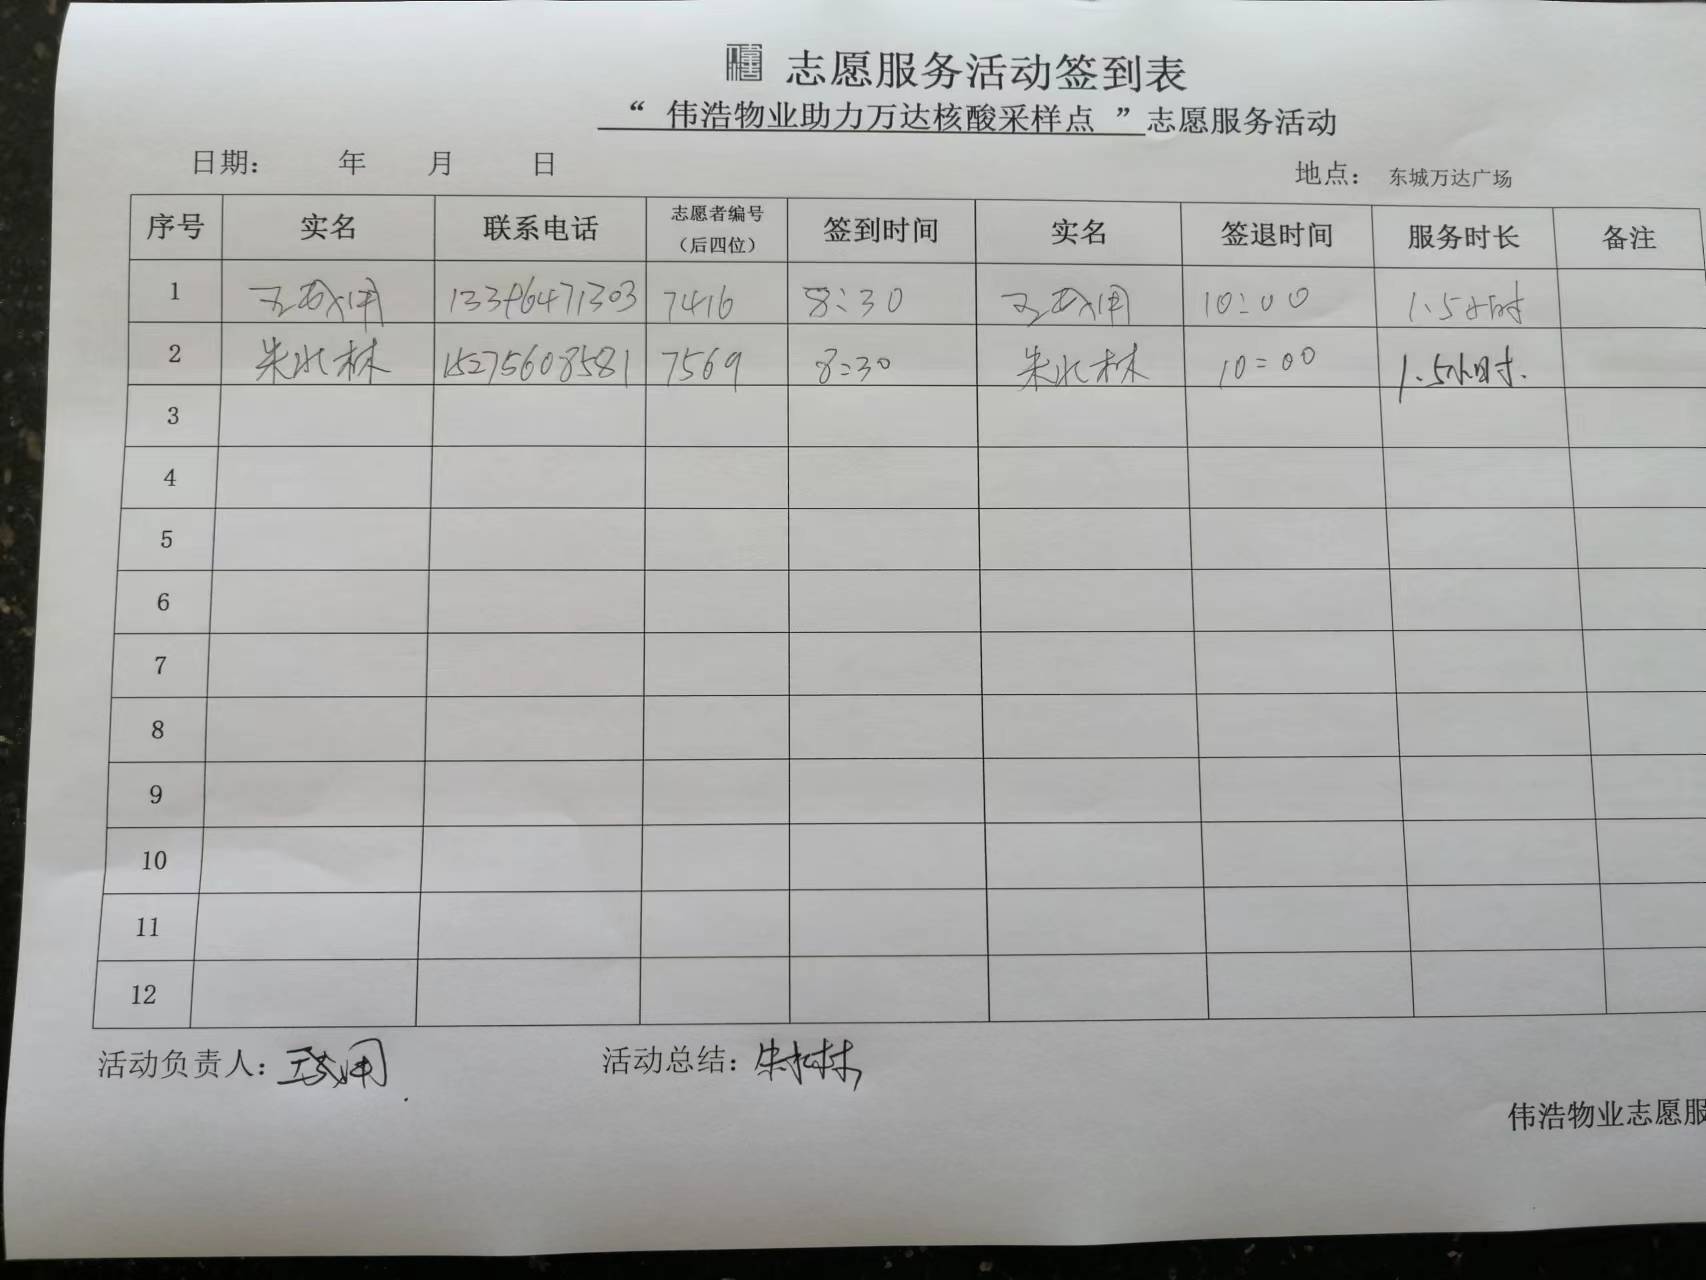 志愿服务活动签到表
“ 伟浩物业助力万达核酸采样点 ”志愿服务活动
日期： 年 月 日 地点： 东城万达广场
序号 实名 联系电话 志愿者编号（后四位） 签到时间 实名 签退时间 服务时长 备注
1 13396471303 7416 8:30 10:00 1.5小时
2 朱 林 15275608581 7569 8:30 朱 林 10:00 1.5小时.
3
4
5
6
7
8
9
10
11
12
活动负责人： 活动总结：
伟浩物业志愿服